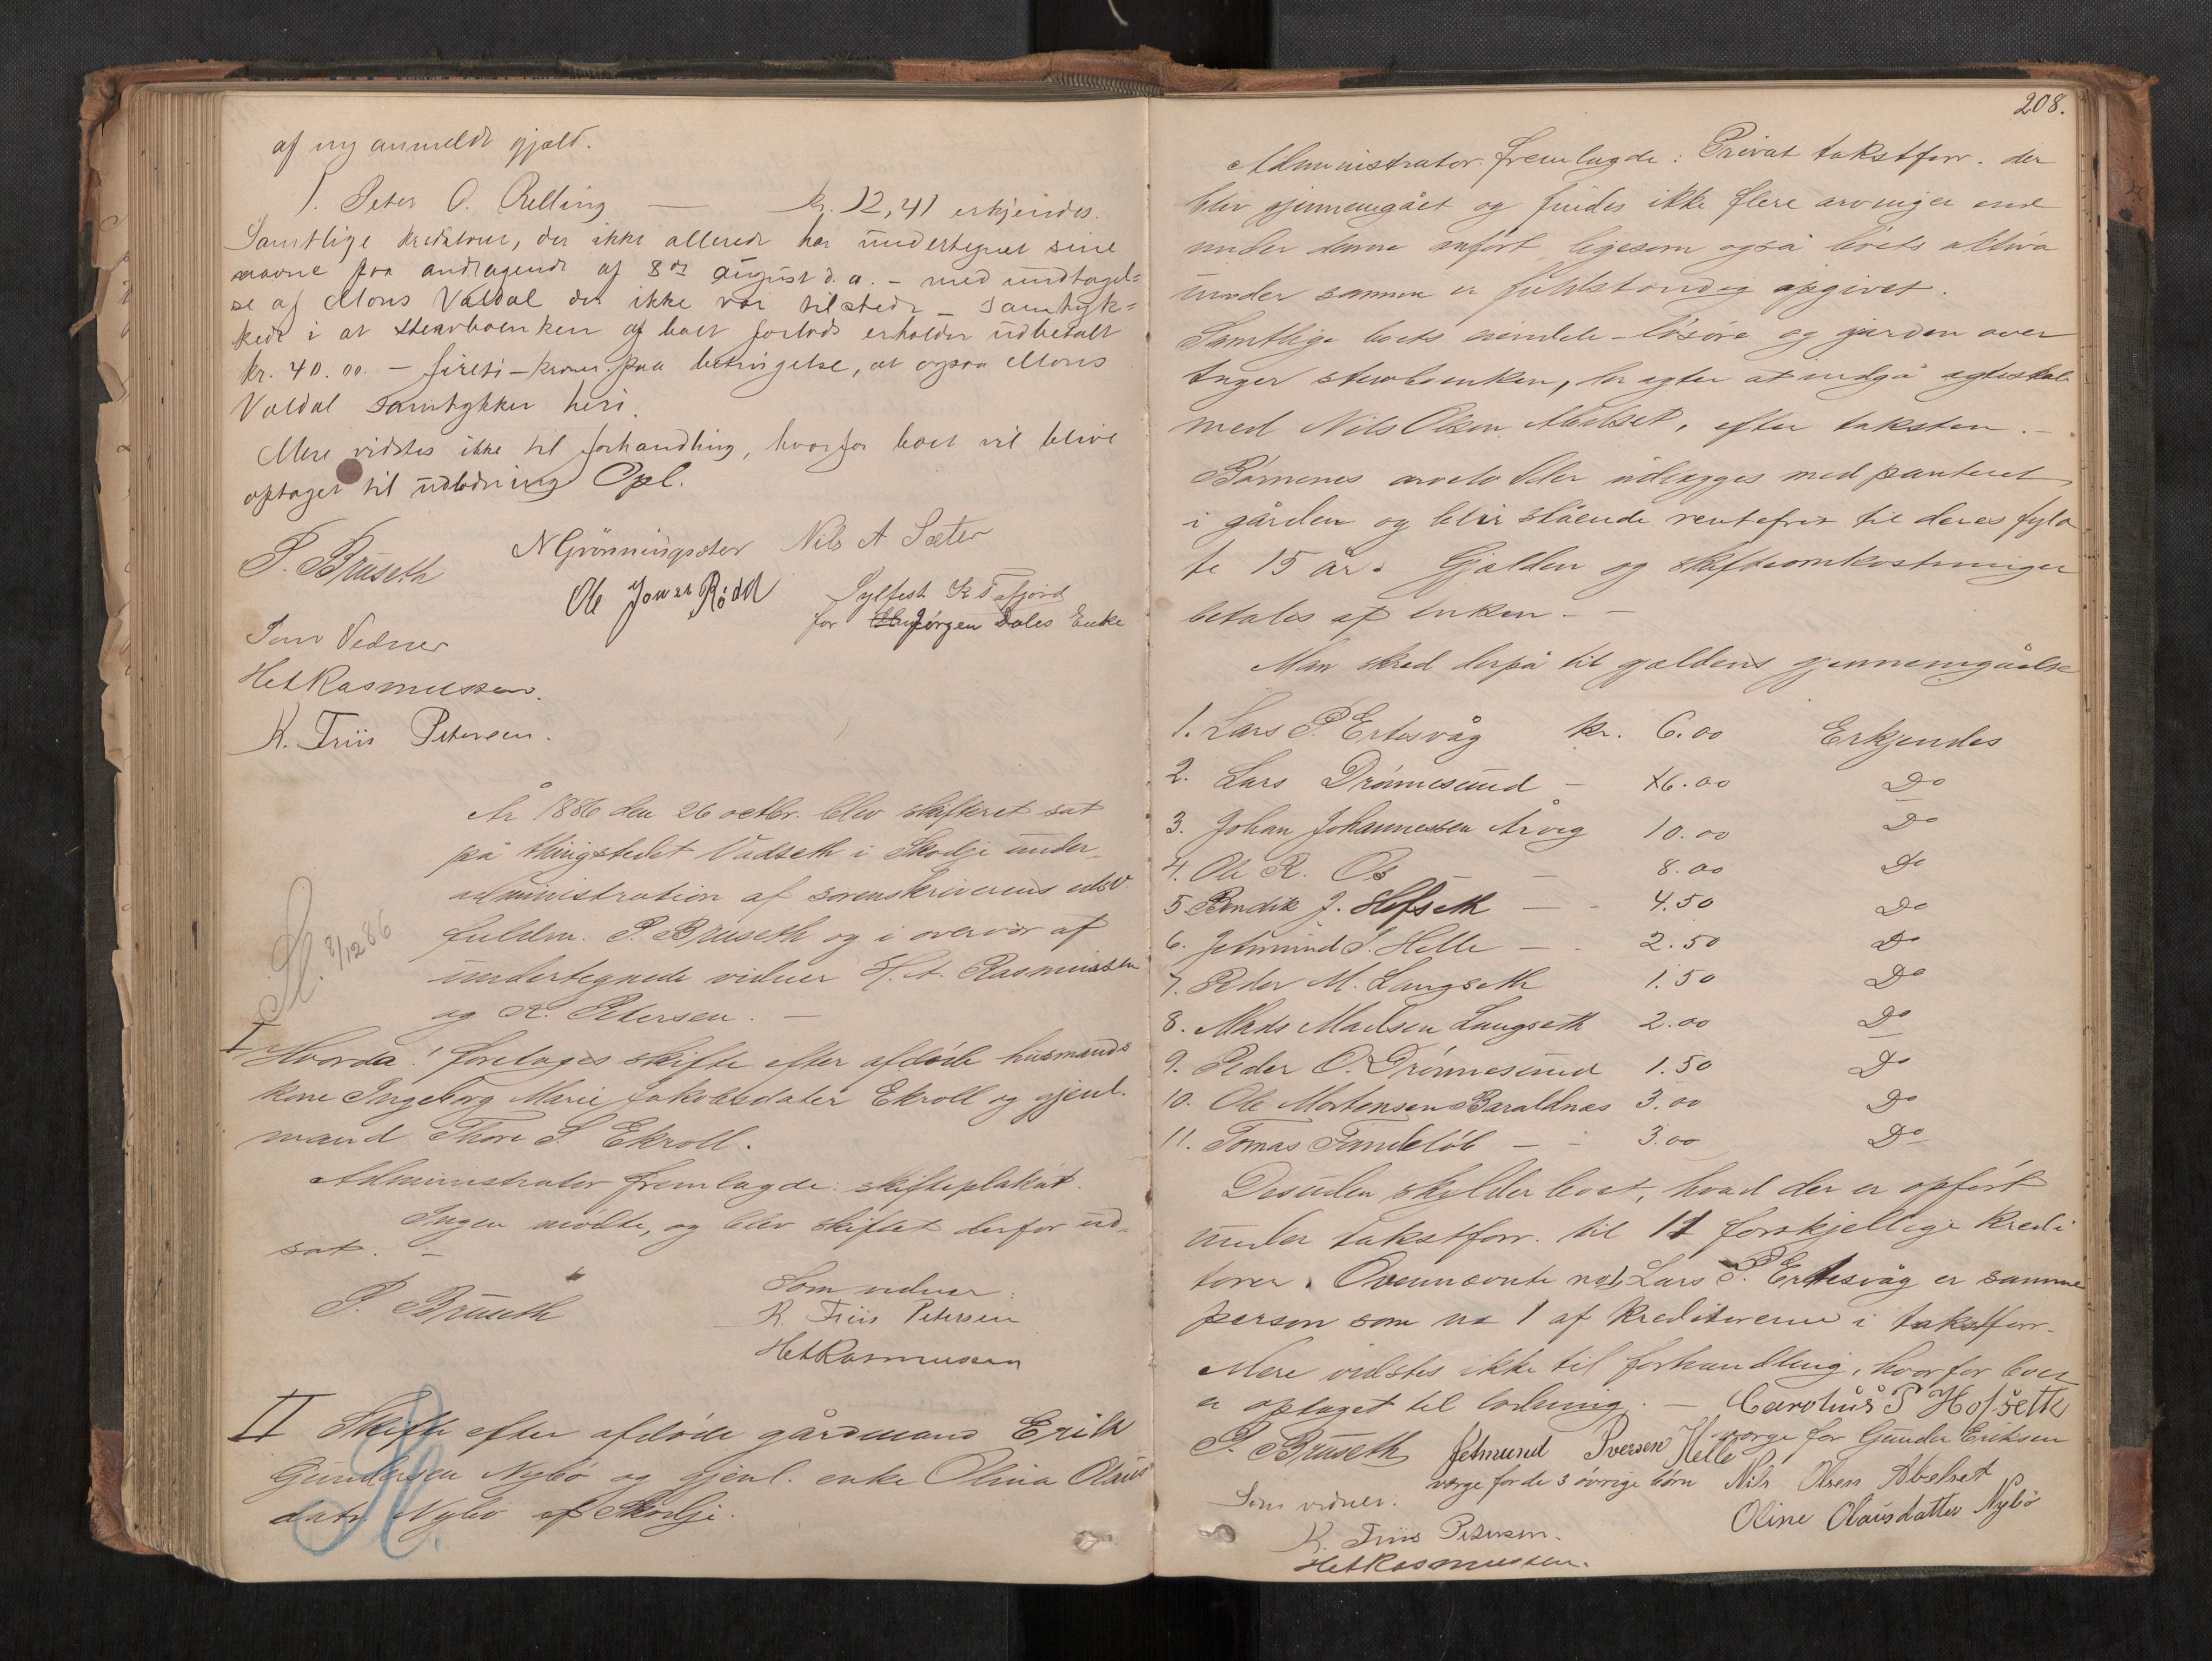 af ny anmeldt gjæld.
1. Peter O. Relling — kr. 12,41 erkjendes.
Samtlige kreditorer, der ikke allerede har undertegnet sine
navne paa andragende af 8de august d. a. – med undtagel-
se af Mons Valdal der ikke var tilstede – samtyk-
kede i at sterboenken af boet forlods erholder udbetalt
kr. 40.00. – firети-kroner paa betingelse, at ogsaa Mons
Valdal samtykker heri.
Mere vidstes ikke til forhandling, hvorfor boet vil blive
optaget til udlodning Opl.
P. Bruseth N Grönningsæter Nils A Sæter
Ole Jonsen Rødd Sylfest K Tafjord
for Jørgen Dales Enke
Som Vidner
HetRasmussen.
K. Friis Petersen.
År 1886 den 26 octbr. blev skifteret sat
på thingstedet Vadseth i Skodje under
administration af sorenskriverens edsv.
fuldm. P. Bruseth og i overvær af
undertegnede vidner H. A. Rasmussen
og K. Petersen. –
Sl. 8/12 86
I
Hvorda! foretoges skifte efter afdøde husmands
kone Ingeborg Marie Jakobsdater Ekroll og gjenl.
mand Thore S. Ekroll.
Administrator fremlagde: skifteplakat.
Ingen mødte, og blev skiftet derfor ud-
sat. –
P. Bruseth Som vidner:
K. Friis Petersen
HetRasmussen
II Skifte efter afdøde gårdmand Erik
Gundersen Nybø og gjenl. enke Olina Olaus
datr. Nybø af Skodje.
208.
Administrator fremlagde: Privat takstforr. der
blev gjennemgået og findes ikke flere arvinger end
under denne anført ligesom også boets aktiva
under samme er fuldstændig opgivet.
Samtlige boets eiendele – løsøre og jorden over
tager sterboenken, der agter at indgå ægteskab
med Nils Olsen Abelset, efter taksten. –
Börnenes arvelodder udlægges med panteret
i gården og blir stående rentefrit til deres fyld
te 15 år. Gjælden og skifteomkostninger
betales af enken. –
Man skred derpå til gjældens gjennemgåelse
1. Lars P. Ertesvåg kr. 6.00 Erkjendes
2. Lars Drönnesund – 16.00 Do
3. Johan Johannessen Årvig 10.00 Do
4. Ole R. Os — – 8.00 Do
5. Bendik J. Hofseth — – 4.50 Do
6. Jetmund S. Helle – – 2.50 Do
7. Peder M. Langseth 1.50 Do
8. Mads Madsen Langseth 2.00 Do
9. Peder O. Drönnesund 1.50 Do
10. Ole Mortensen Baraldnæs 3.00 Do
11. Tomas Tandeløb – – 3.00 Do
Desuden skylder boet, hvad der er opført
under takstforr. til 11 forskjellige kredi
torer. Ovennævnte no 1, Lars P. Ertesvåg er samme
person som no 1 af kreditorerne i takstforr.
Mere vidstes ikke til forhandling, hvorfor boet
er optaget til lodning. – Carolus P Hofseth
P. Bruseth Jetmund Iversen Helle værge for Gunder Eriksen
værge for de 3 øvrige börn Nils Olsen Abelset
Som vidner: Oline Olausdatter Nybö
K. Friis Petersen.
HetRasmussen.